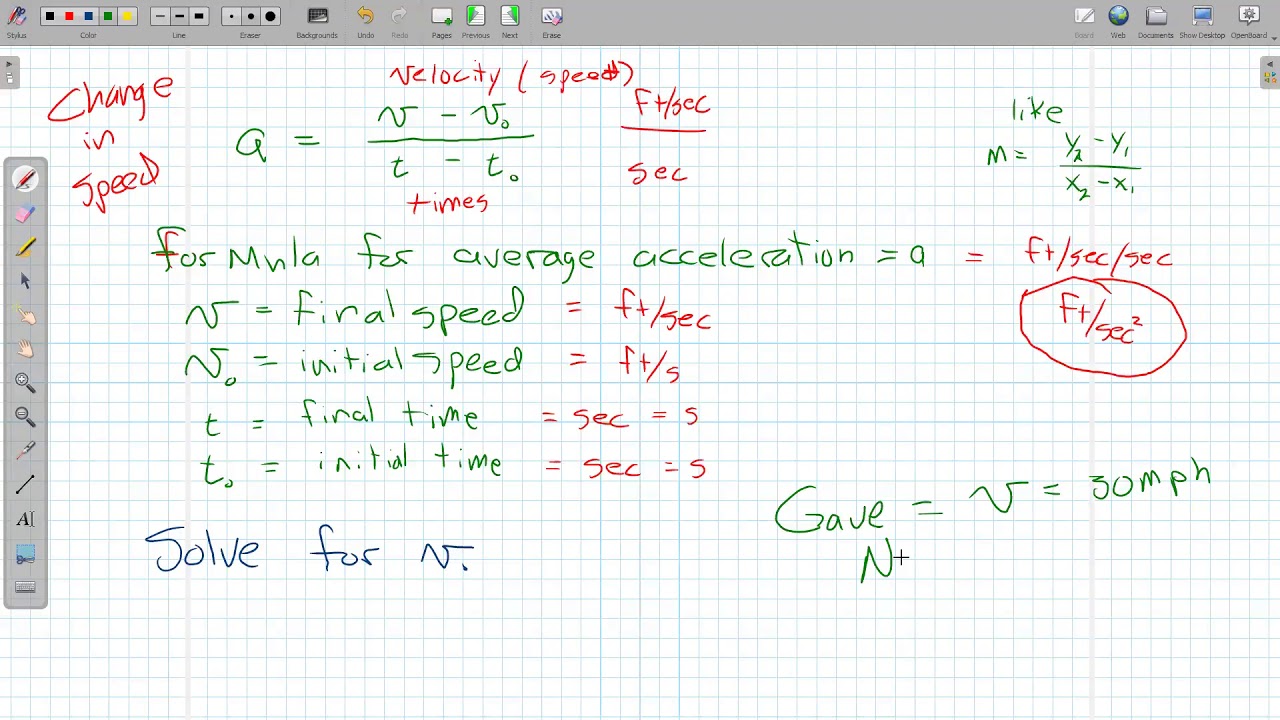 Stylus Color Line Eraser Backgrounds Undo Redo Pages Previous Next Erase Board Web Documents Show Desktop OpenBoard
Change
in
speed
velocity (speed)
a = v - v₀ / t - t₀
times
ft/sec
sec
like
m = y₂ - y₁ / x₂ - x₁
formula for average acceleration = a = ft/sec/sec
ft/sec²
v = final speed = ft/sec
v₀ = initial speed = ft/s
t = final time = sec = s
t₀ = initial time = sec = s
Gave = v = 30mph
N
Solve for v.